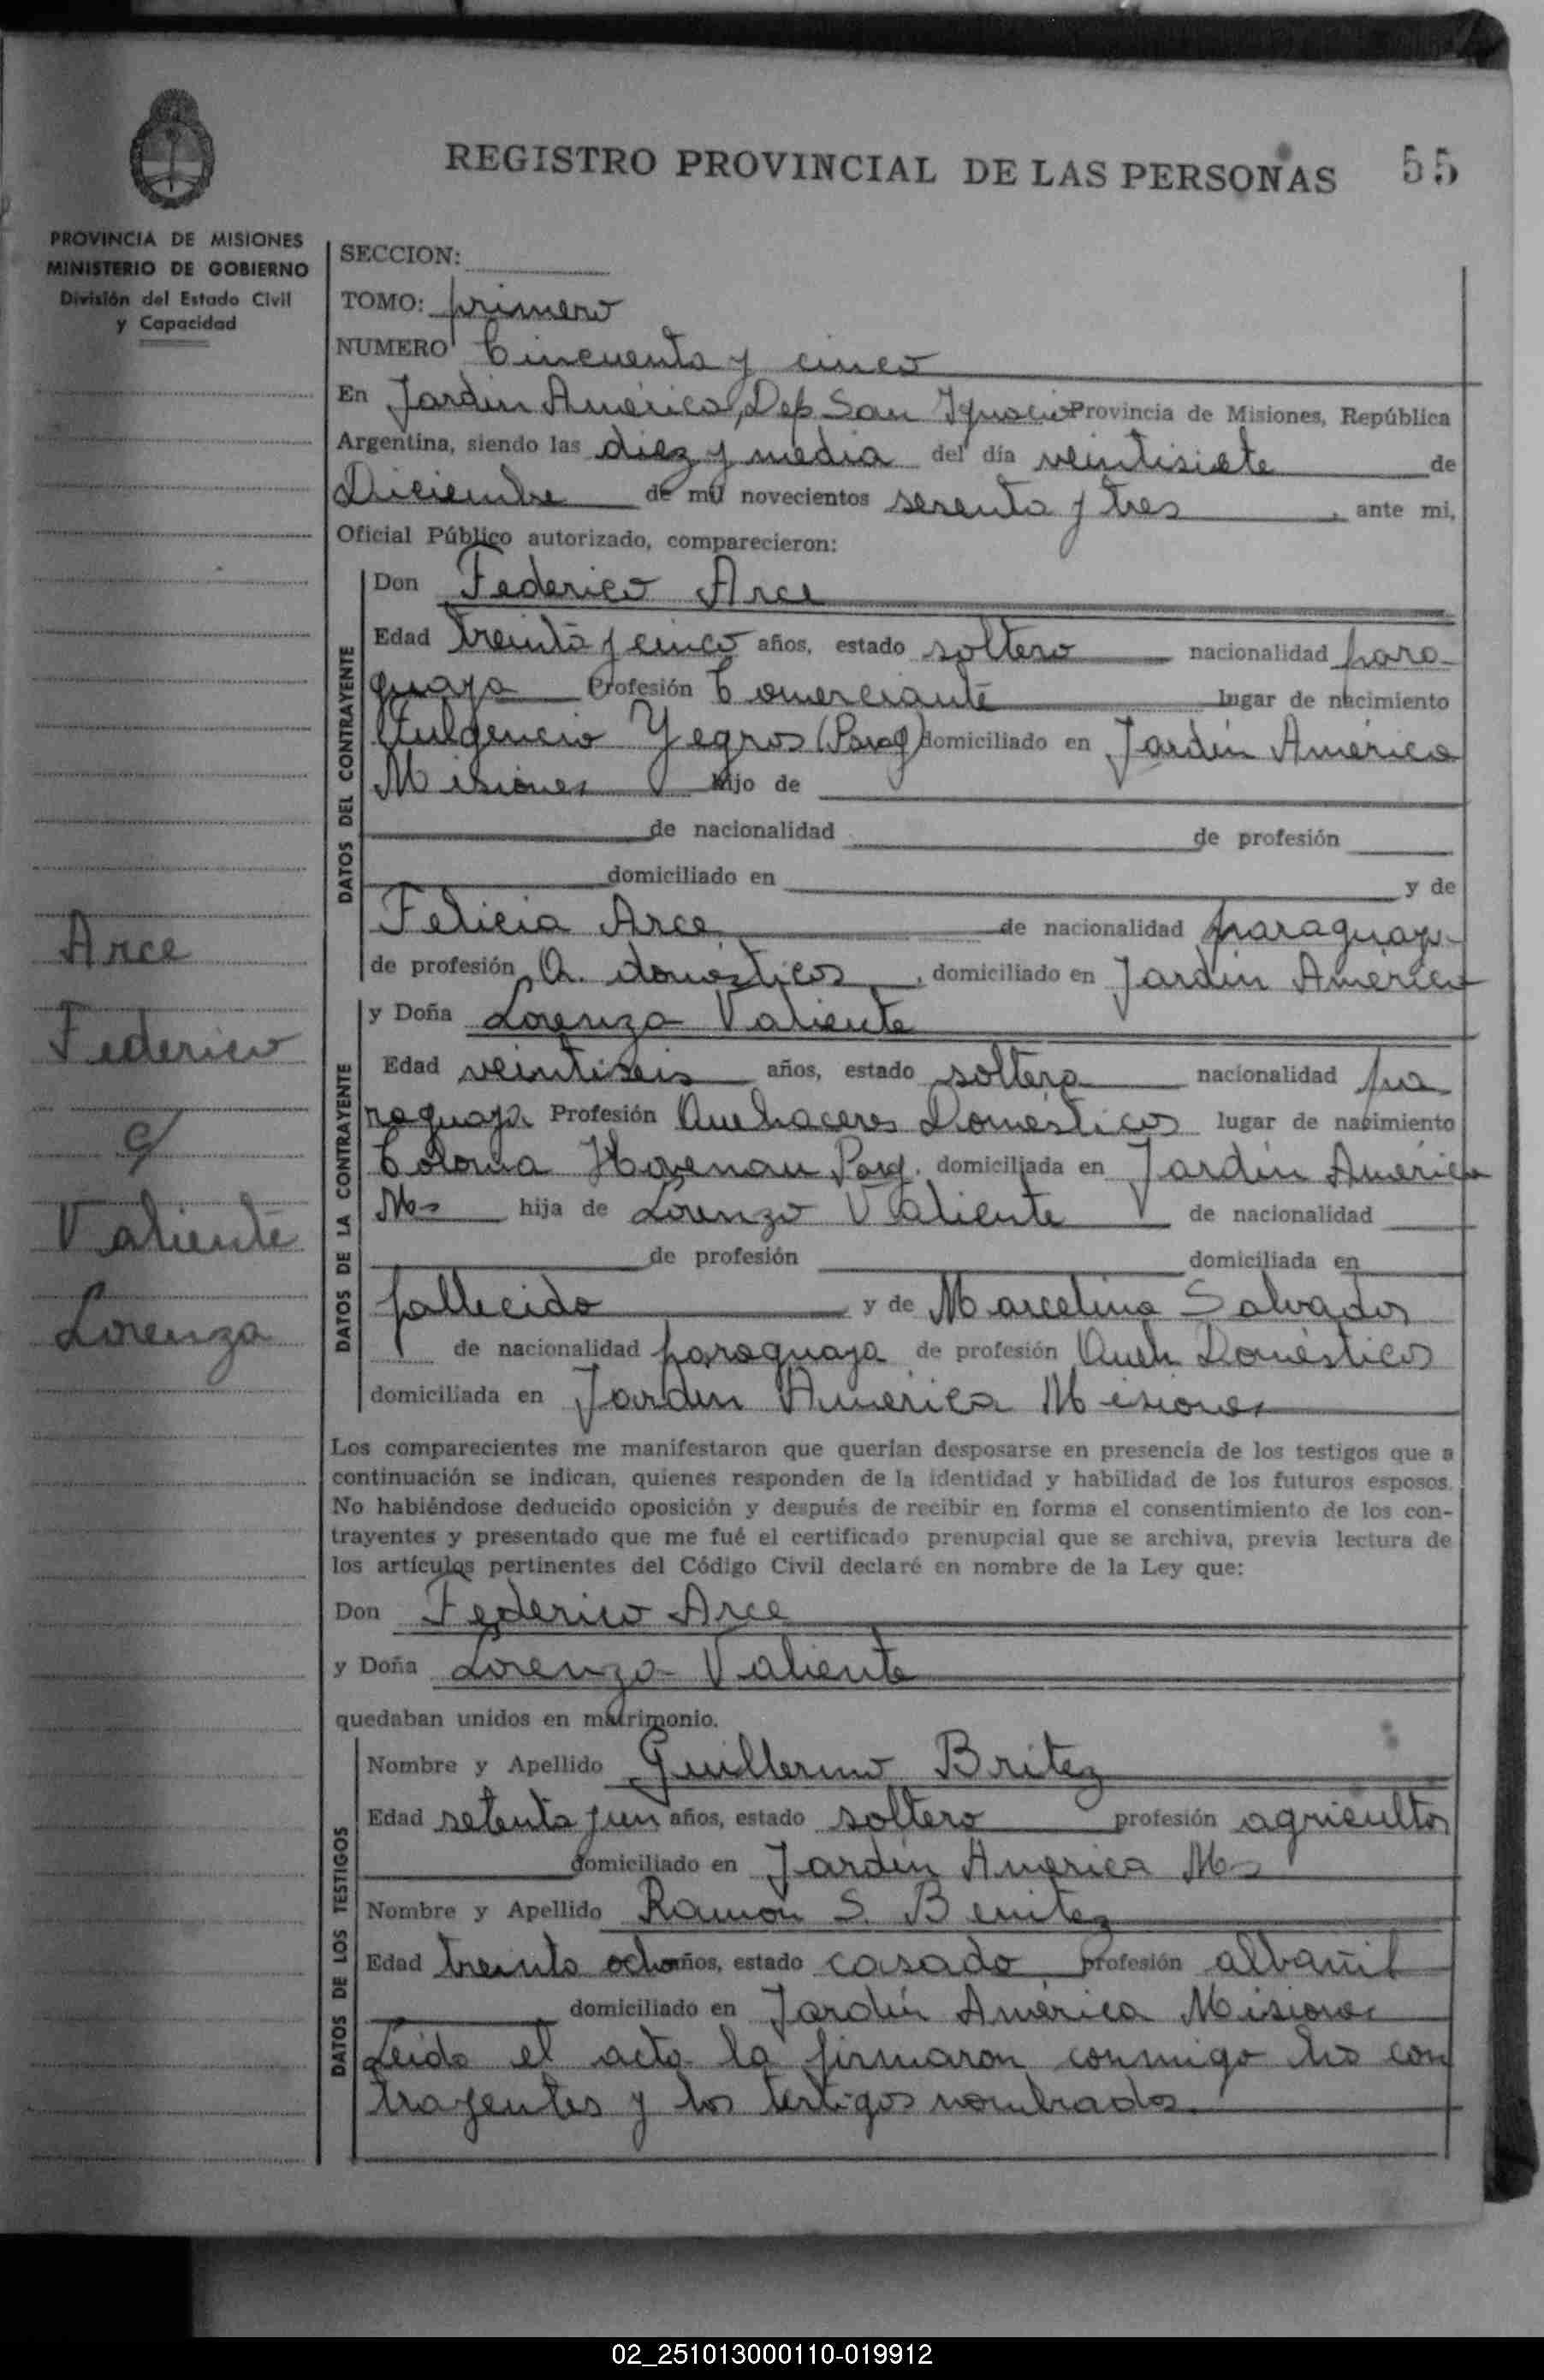 REGISTRO PROVINCIAL DE LAS PERSONAS 55
PROVINCIA DE MISIONES
MINISTERIO DE GOBIERNO
División del Estado Civil
y Capacidad
Arce
Federico
c/
Valiente
Lorenza
SECCION:
TOMO: primero
NUMERO Cincuenta y cinco
En Jardín América, Dep San Ignacio Provincia de Misiones, República
Argentina, siendo las diez y media del día veintisiete de
Diciembre de mil novecientos setenta y tres, ante mi,
Oficial Público autorizado, comparecieron:
DATOS DEL CONTRAYENTE
Don Federico Arce
Edad treinta y cinco años, estado soltero nacionalidad para-
guaya Profesión Comerciante lugar de nacimiento
Fulgencio Yegros (Parag) domiciliado en Jardín América
Misiones hijo de
de nacionalidad de profesión
domiciliado en y de
Felicia Arce de nacionalidad paraguaya
de profesión Q. domésticos, domiciliado en Jardín América
DATOS DE LA CONTRAYENTE
y Doña Lorenza Valiente
Edad veintiseis años, estado soltera nacionalidad pa
raguaya Profesión Quehaceres Domésticos lugar de nacimiento
Colonia Hoenau Parg. domiciliada en Jardín América
Ms hija de Lorenzo Valiente de nacionalidad
de profesión domiciliada en
fallecido y de Marcelina Salvador
de nacionalidad paraguaya de profesión Queh Domésticos
domiciliada en Jardín América Misiones
Los comparecientes me manifestaron que querían desposarse en presencia de los testigos que a
continuación se indican, quienes responden de la identidad y habilidad de los futuros esposos.
No habiéndose deducido oposición y después de recibir en forma el consentimiento de los con-
trayentes y presentado que me fué el certificado prenupcial que se archiva, previa lectura de
los artículos pertinentes del Código Civil declaré en nombre de la Ley que:
Don Federico Arce
y Doña Lorenza Valiente
quedaban unidos en matrimonio.
DATOS DE LOS TESTIGOS
Nombre y Apellido Guillermo Britez
Edad setenta y un años, estado soltero profesión agricultor
domiciliado en Jardín América Ms
Nombre y Apellido Ramón S. Benitez
Edad treinta ocho años, estado casado profesión albañil
domiciliado en Jardín América Misiones
Leida el acta la firmaron conmigo los con
trayentes y los testigos nombrados.
02_251013000110-019912